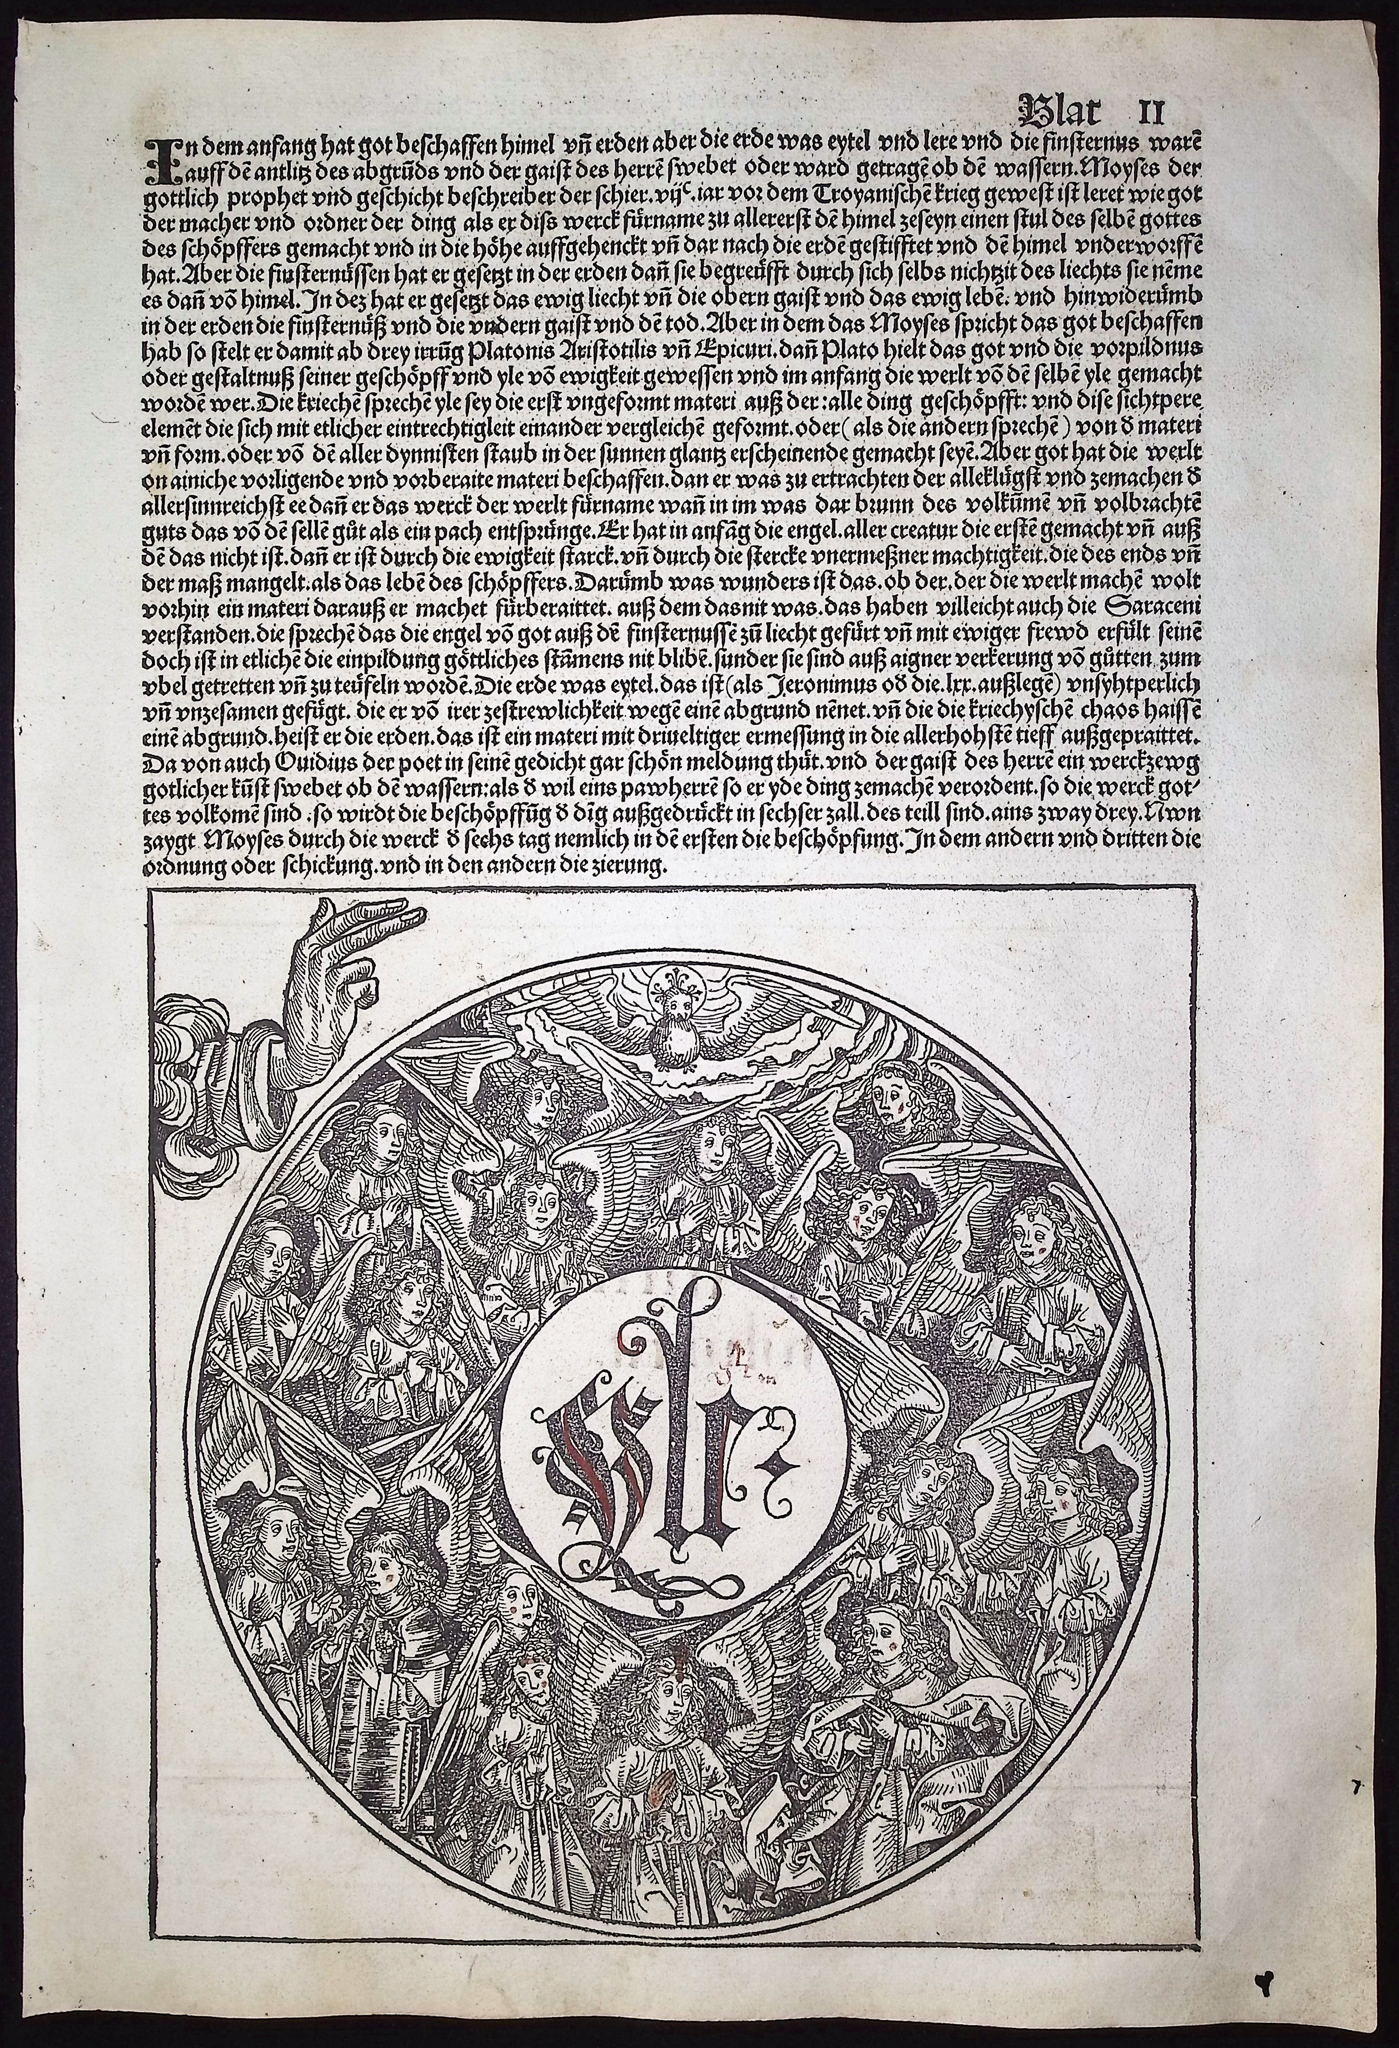 Blat II
In dem anfang hat got beschaffen himel vñ erden aber die erde was eytel vnd lere vnd die finsternus warẽ
auff dẽ antlitz des abgrũds vnd der gaist des herrẽ swebet oder ward getragẽ ob dẽ wassern. Moyses der
gottlich prophet vnd geschicht beschreiber der schier. vijᶜ. iar vor dem Troyanischẽ krieg gewest ist leret wie got
der macher vnd ordner der ding als er diss werck fürname zu allererst dẽ himel zeseyn einen stul des selbẽ gottes
des schöpffers gemacht vnd in die höhe auffgehenckt vñ dar nach die erdẽ gestifftet vnd dẽ himel vnderworffẽ
hat. Aber die finsternüssen hat er gesetzt in der erden dañ sie begreüfft durch sich selbs nichtzit des liechts sie nẽme
es dañ võ himel. In dez hat er gesetzt das ewig liecht vñ die obern gaist vnd das ewig lebẽ. vnd hinwiderümb
in der erden die finsternüß vnd die vndern gaist vnd dẽ tod. Aber in dem das Moyses spricht das got beschaffen
hab so stelt er damit ab drey irrũg Platonis Aristotilis vñ Epicuri. dañ Plato hielt das got vnd die vorpildnus
oder gestaltnuß seiner geschöpff vnd yle võ ewigkeit gewessen vnd im anfang die werlt võ dẽ selbẽ yle gemacht
wordẽ wer. Die kriechẽ sprechẽ yle sey die erst vngeformt materi auß der: alle ding geschöpfft: vnd dise sichtpere
elemẽt die sich mit etlicher eintrechtigleit einander vergleichẽ geformt. oder ( als die andern sprechẽ ) von ð materi
vñ form. oder võ dẽ aller dynnisten staub in der sunnen glantz erscheinende gemacht seyẽ. Aber got hat die werlt
on ainiche vorligende vnd vorberaite materi beschaffen. dan er was zu ertrachten der alleklügst vnd zemachen ð
allersinnreichst ee dañ er das werck der werlt fürname wañ in im was dar brunn des volkũmẽ vñ volbrachtẽ
guts das võ dẽ sellẽ gůt als ein pach entsprünge. Er hat in anfãg die engel. aller creatur die erstẽ gemacht vñ auß
dẽ das nicht ist. dañ er ist durch die ewigkeit starck. vñ durch die stercke vnermeßner machtigkeit. die des ends vñ
der maß mangelt. als das lebẽ des schöpffers. Darümb was wunders ist das. ob der. der die werlt machẽ wolt
vorhin ein materi darauß er machet fürberaittet. auß dem dasnit was. das haben villeicht auch die Saraceni
verstanden. die sprechẽ das die engel võ got auß dẽ finsternussẽ zů liecht gefürt vñ mit ewiger frewd erfült seinẽ
doch ist in etlichẽ die einpildung göttliches stãmens nit blibẽ. sunder sie sind auß aigner verkerung võ gůtten zum
vbel getretten vñ zu teüfeln wordẽ. Die erde was eytel. das ist (als Jeronimus oð die. lxx. außlegẽ) vnsyhtperlich
vñ vnzesamen gefügt. die er võ irer zestrewlichkeit wegẽ einẽ abgrund nẽnet. vñ die die kriechyschẽ chaos haissẽ
einẽ abgrund. heist er die erden. das ist ein materi mit driueltiger ermessung in die allerhohstẽ tieff außgepraittet.
Da von auch Ouidius der poet in seinẽ gedicht gar schön meldung thüt. vnd der gaist des herrẽ ein werckzewg
gotlicher kũst swebet ob dẽ wassern: als ð wil eins pawherrẽ so er yde ding zemachẽ verordent. so die werck got-
tes volkomẽ sind . so wirdt die beschöpffũg ð dĩg außgedrückt in sechser zall. des teill sind. ains zway drey. Nwn
zaygt Moyses durch die werck ð sechs tag nemlich in dẽ ersten die beschöpfung. In dem andern vnd dritten die
ordnung oder schickung. vnd in den andern die zierung.